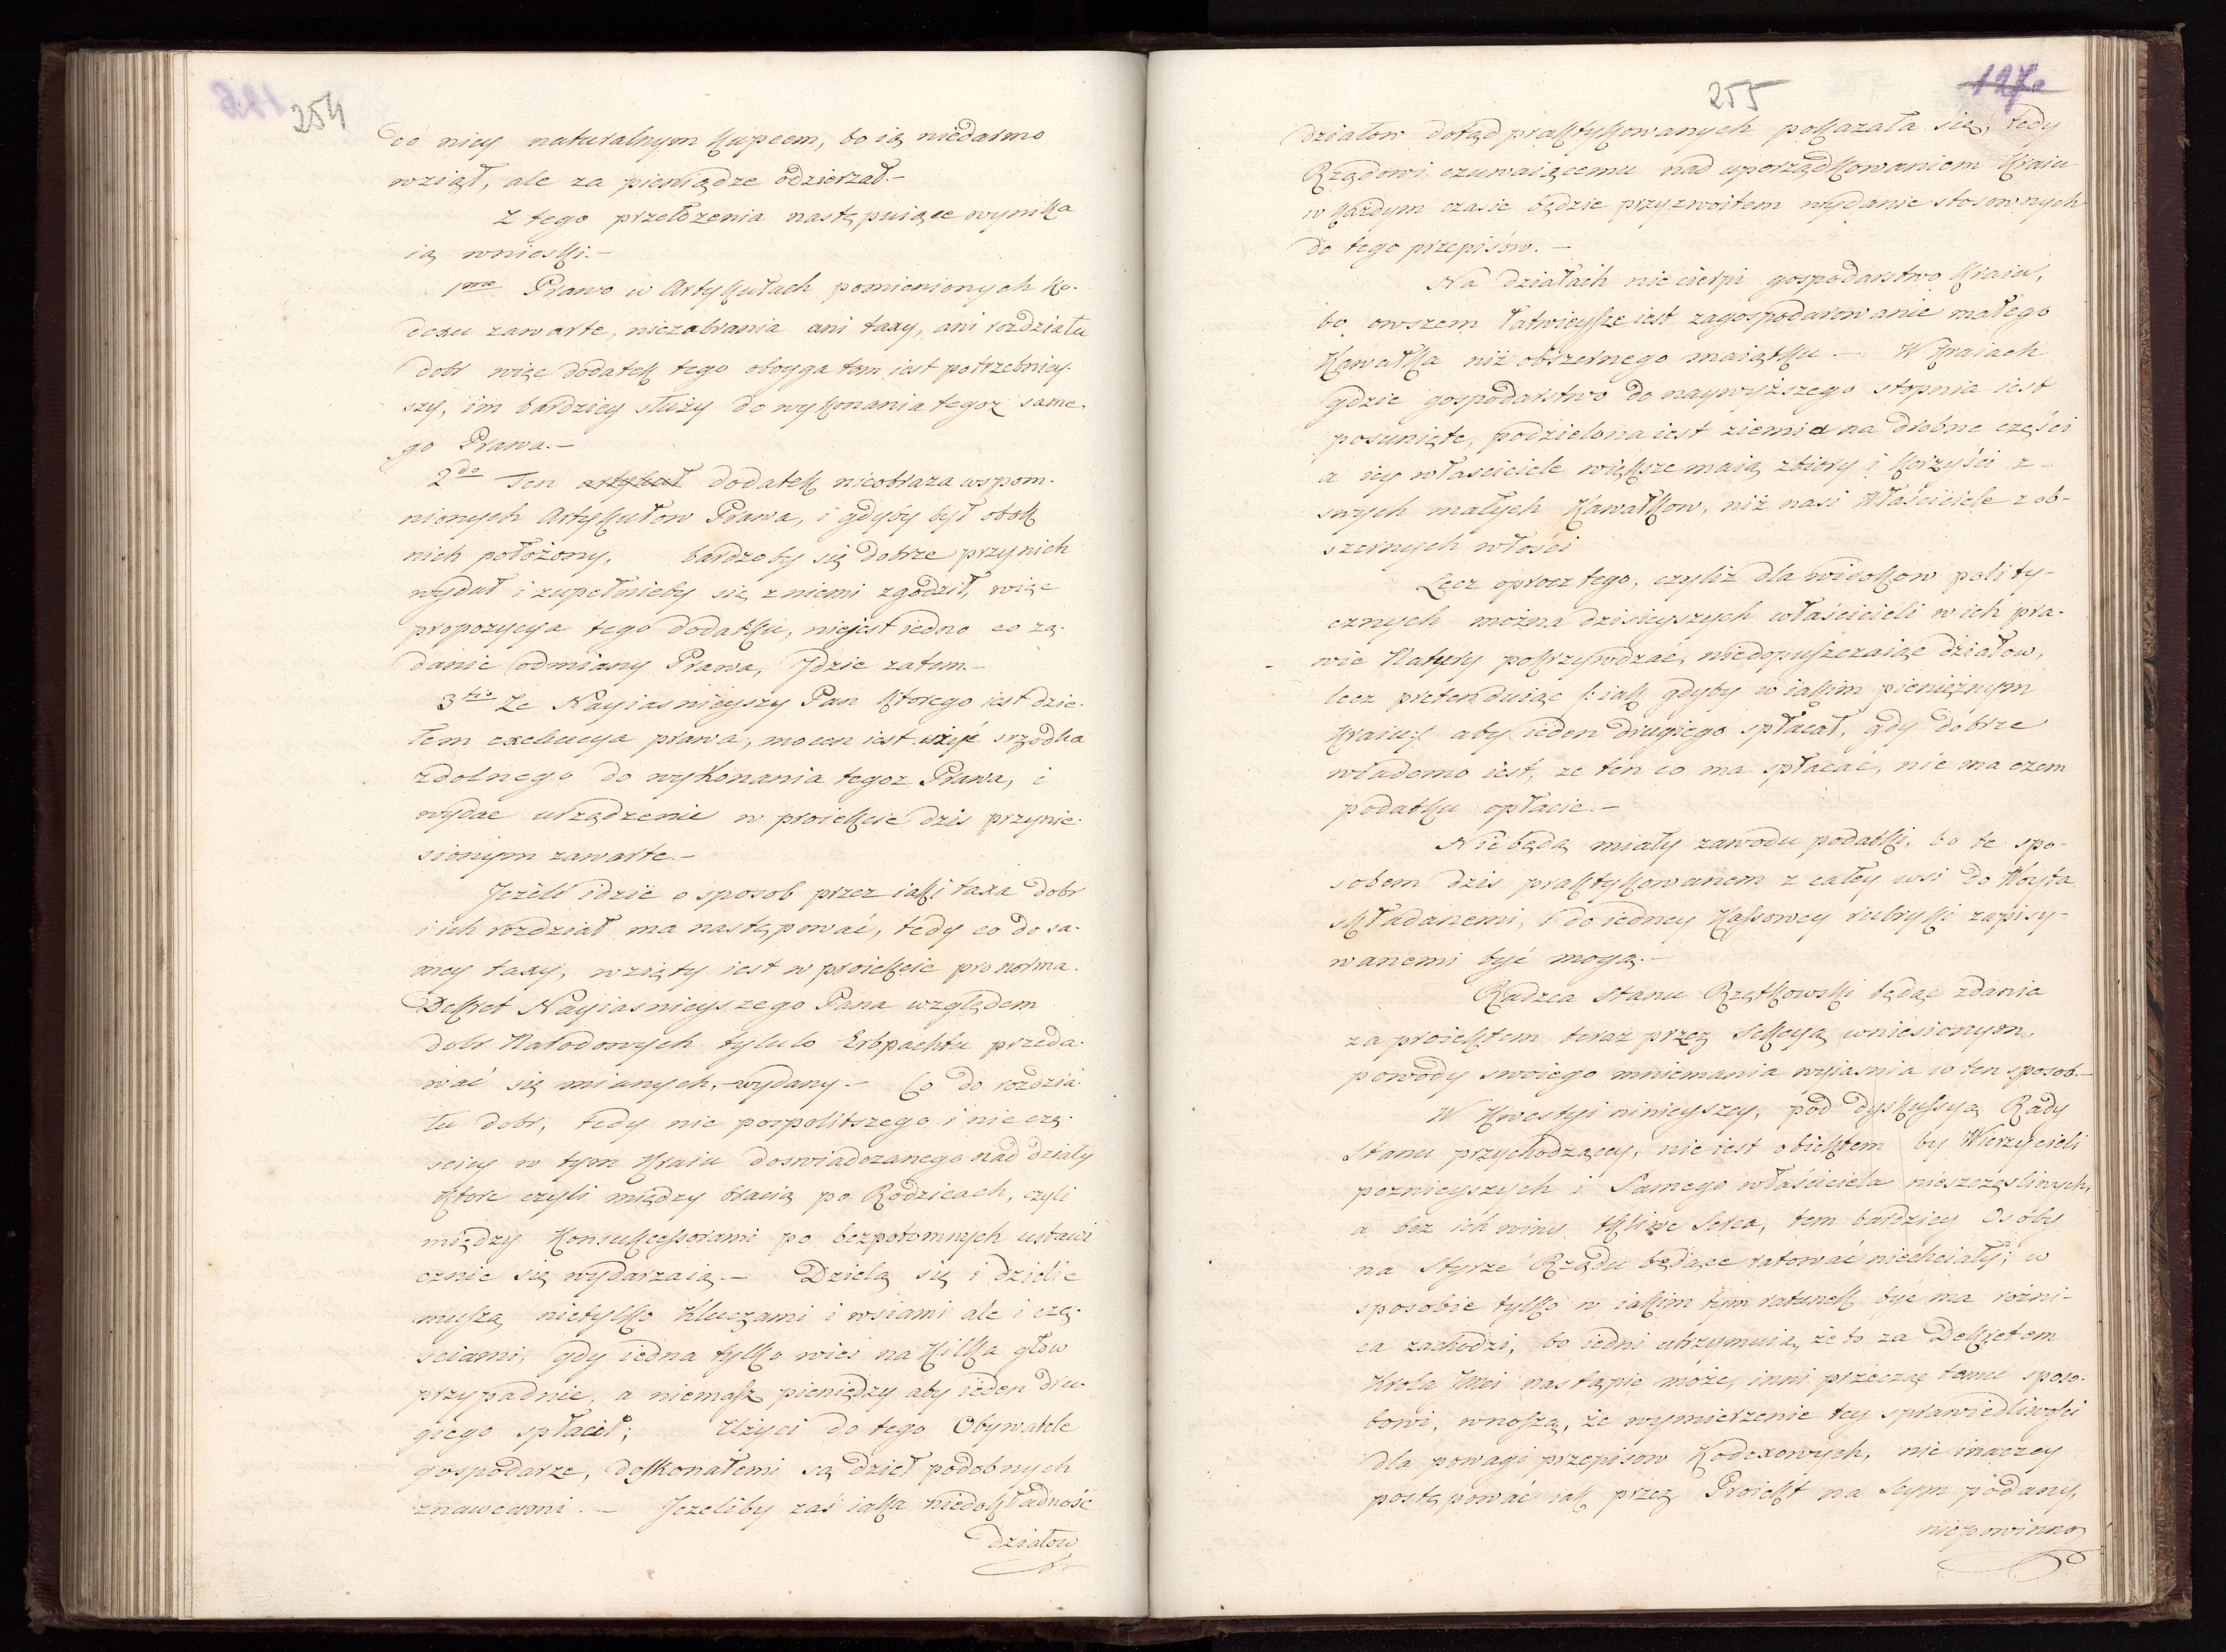 254
co niey naturalnym kupcem, bo ią niedarmo
wziął, ale za pieniądze odzierzał.–
Z tego przełożenia następuiące wynika
ią wnioski.–
1mo Prawo w Artykułach pomienionych Ko-
dexu zawarte, niezabrania ani taxy, ani rozdziału
dobr więc dodatek tego oboyga tem iest potrzebniey-
szy, im bardziey służy do wykonania tegoz same-
go Prawa.–
2do Ten artykuł dodatek nieobraza wspom-
nionych Artykułow Prawa, i gdyby był obok
nich położony, bardzoby się dobrze przynich
wydał i zupełnieby się z niemi zgodził, więc
propozycya tego dodatku, niejest iedno co żą-
danie odmiany Prawa, Jdzie zatem.–
3tio Ze Nayiasnieyszy Pan ktorego iest dzie-
łem exekucya prawa, mocen iest użyć srzodka
zdolnego do wykonania tegoz Prawa, i
wydac urządzenie w proiekcie dzis przynie-
sionym zawarte.–
Jeżeli idzie o sposob przez iaki taxa dobr
i ich rozdział ma następować, tedy co do sa-
mey taxy, wzięty iest w proiekcie pro norma
Dekret Nayiasnieyszego Pana względem
dobr Narodowych tytulo Erbpachtu przeda-
wać się mianych, wydany.– Co do rozdzia-
łu dobr, tedy nic pospolitszego i nic czę-
sciey w tym Kraiu doswiadczanego nad działy
Ktore czyli między bracią po Rodzicach, czyli
między Konsukcessorami po bezpotomnych ustawi
cznie się wydarzaią.– Dzielą się i dzielić
muszą nietylko Kluczami i wsiami ale i czę-
sciami, gdy iedna tylko wies na Kilka głow
przypadnie, a niemasz pieniędzy aby ieden dru-
giego spłacił; Użyci do tego Obywatele
gospodarze, doskonałemi są dzieł podobnych
znawcami.– Jezeliby zaś iaka niedokładność
działow
255
127.
działow dotąd praktykowanych pokazała się, tedy
Rządowi czuwaiącemu nad uporządkowaniem Kraiu
w każdym czasie będzie przyzwoitem wydanie stosownych
do tego przepisów.–
Na działach nie cierpi gospodarstwo Kraiu,
bo owszem łatwieysze iest zagospodarowanie małego
Kawałka niż obszernego maiątku.– W Kraiach
gdzie gospodarstwo do naywyższego stopnia iest
posunięte, podzielona iest ziemia na drobne części
a iey właściciele większe maią zbiory i korzyści z
swych małych Kawałkow, niż nasi Właściciele z ob-
szernych włości
Lecz oprocz tego, czyliż dla widokow polity-
cznych można dzisieyszych właścicieli w ich pra-
wie Natury pokrzywdzac, niedopuszczaiąc działow,
lecz pretenduiąc /: iak gdyby w iakim pienięznym
Kraiu :/ aby ieden drugiego spłacał, gdy dobrze
wiadomo iest, ze ten co ma spłacać, nie ma czem
podatku opłacić.–
Nie będą miały zawodu podatki, bo te spo-
sobem dzis praktykowanem z całey wsi do Woyta
składanemi, i do iedney Kassowey rubryki zapisy-
wanemi być mogą.–
Radzca Stanu Rzętkowski będąc zdania
za proiektem teraz przez Sekcyą wniesionym,
powody swoiego mniemania wyiasnia w ten sposob.–
W Kwestyi ninieyszey, pod dyskussyą Rady
Stanu przychodzącey, nie iest obiektem by Wierzycieli
poznieyszych i Samego właściciela nieszczęsliwych,
a bez ich winy tkliwe Serca, tem bardziey Osóby
na Styrze Rządu będące ratować niechciały; w
sposobie tylko w iakim tym ratunek być ma rożni-
ca zachodzi, bo iedni utrzymuią, że to za Dekretem
Krola Jmci nastąpic może, inni przecząc temu sposo-
bowi, wnoszą, że wymierzenie tey sprawiedliwości
dla powagi przepisow Kodexowych, nie inaczey
postępować iak przez Proiekt na Seym podany,
niepowinno